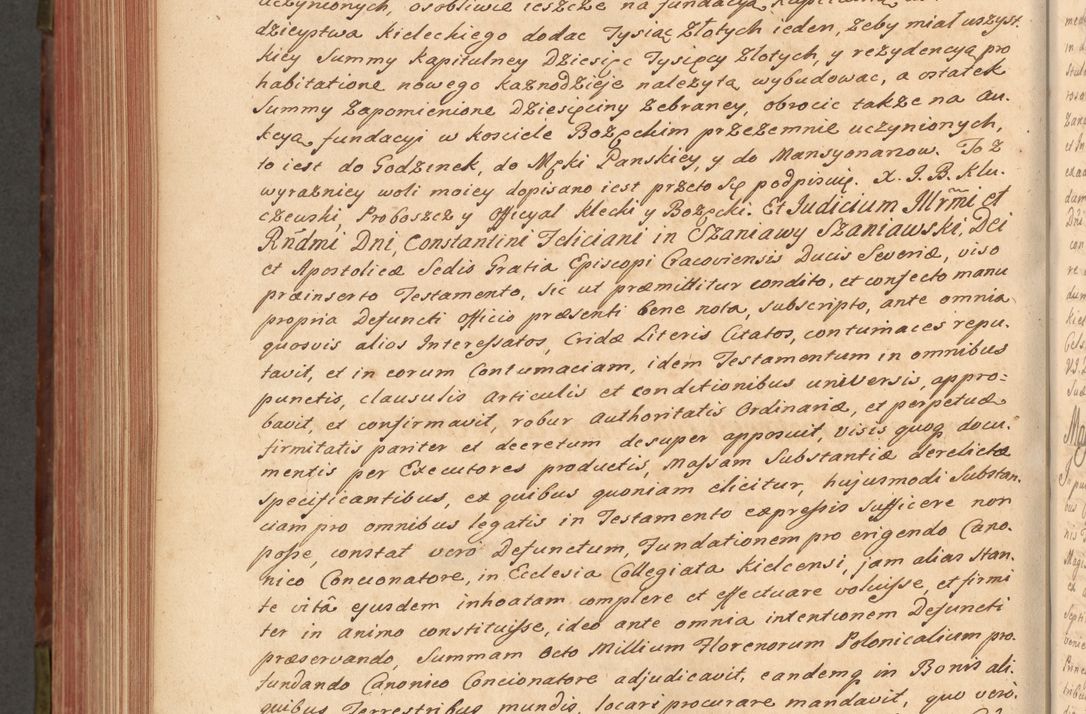 uczynionych, osobliwie ieszcze na fundacyą Kapitulną
dzieystwa Kieleckiego dodac Tysiąc Złotych ieden, żeby miał uzyst.
kiey Summy Kapitulney Dziesięc Tysięcy Złotych, y rezydencyą pro
habitatione nowego Kaznodzieje należytą wybudowac, a ostatek
Summy Zapomienione Dziesięciny Zebraney, obrocic także na au.
kcyą fundacyi w kosciele Bożęckim przezemnie uczynionych,
to iest do Godzinek, do Męki Panskiey, y do Mansyonarzow. To z
wyrażniey woli moiey dopisano iest przeto się podpisuię. X. J. B. Klu.
czewski, Proboszcz y Officyał Klecki y Bożęcki. Et Judicium Illrmi et
Rndmi Dni, Constantini Feliciani in Szaniawy Szaniawski, Dei
et Apostolicæ Sedis Gratia Episcopi Cracoviensis Ducis Severiæ, viso
præinserto Testamento, sic ut præmittitur condito, et confecto manu
propria Defuncti Officio præsenti bene nota, subscripto, ante omnia
quosvis alios Interessatos, Cridæ Literis Citatos, contumaces repu.
tavit, et in eorum Contumaciam, idem Testamentum in omnibus
punctis, clausulis Articulis et conditionibus universis, appro=
bavit, et confirmavit, robur Authoritatis Ordinariæ, et perpetuæ
firmitatis pariter et decretum desuper apposuit, visis quoq docu.
mentis per Executores productis, Massam Substantiæ derelictæ
specificantibus, ex quibus quoniam elicitur, hujusmodi Substan.
ciam pro omnibus legatis in Testamento expressis sufficere non
posse, constat vero Defunctum, Fundationem pro erigendo Cano.
nico Concionatore, in Ecclesia Collegiata Kielcensi, jam alias stan.
te vitâ ejusdem inhoatam complere et effectuare voluisse, et firmi
ter in animo constituisse, ideo ante omnia intentionem Defuncti
præservando, Summam Octo Millium Florenorum Polonicalium pro.
fundando Canonico Concionatore adjudicavit, eandemq in Bonis ali.
quibus Terrestribus mundis, locari procurare mandavit, quo vero,